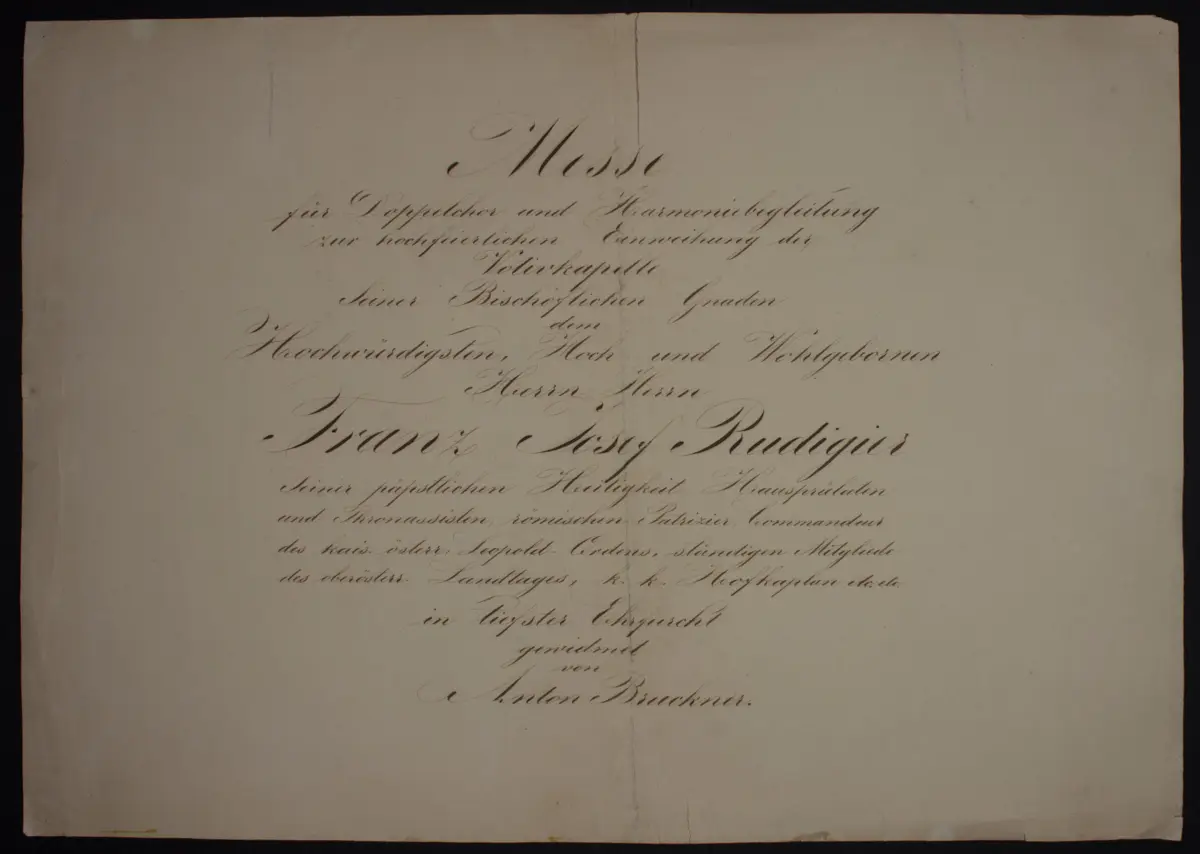 Messe
für Doppelchor und Harmoniebegleitung
zur hochfeierlichen Einweihung der
Votivkapelle
Seiner Bischöflichen Gnaden
dem
Hochwürdigsten, Hoch und Wohlgebornen
Herrn Herrn
Franz Josef Rudigier
Seiner päpstlichen Heiligkeit Hausprälaten
und Thronassisten, römischen Patrizier Commandeur
des kais. österr. Leopold-Ordens, ständigen Mitgliede
des oberösterr. Landtages, k. k. Hofkaplan etc. etc.
in tiefster Ehrfurcht
gewidmet
von
Anton Bruckner.